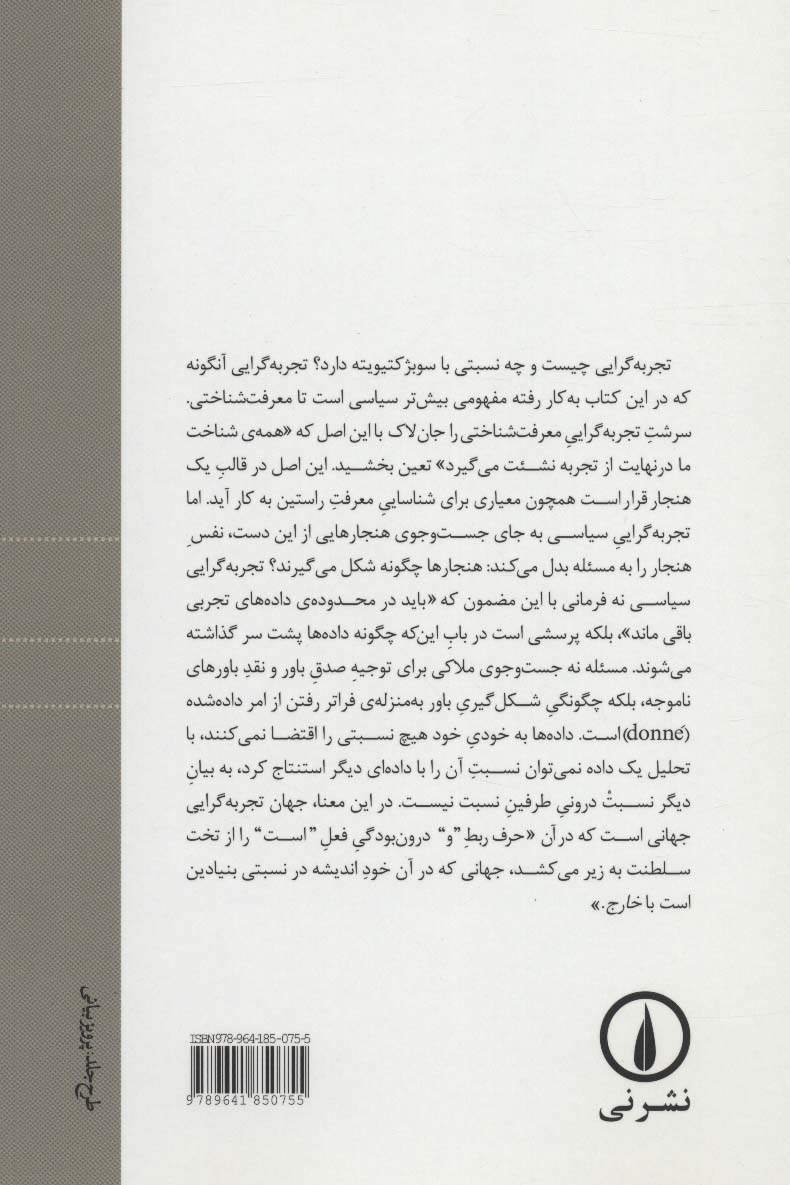 تجربه‌گرایی چیست و چه نسبتی با سوبژکتیویته دارد؟ تجربه‌گرایی آنگونه
که در این کتاب به‌کار رفته مفهومی بیش‌تر سیاسی است تا معرفت‌شناختی.
سرشتِ تجربه‌گراییِ معرفت‌شناختی را جان‌لاک با این اصل که «همه‌ی شناخت
ما درنهایت از تجربه نشئت می‌گیرد» تعین بخشید. این اصل در قالبِ یک
هنجار قرار است همچون معیاری برای شناساییِ معرفتِ راستین به کار آید. اما
تجربه‌گراییِ سیاسی به جای جست‌وجوی هنجارهایی از این دست، نفسِ
هنجار را به مسئله بدل می‌کند: هنجارها چگونه شکل می‌گیرند؟ تجربه‌گرایی
سیاسی نه فرمانی با این مضمون که «باید در محدوده‌ی داده‌های تجربی
باقی ماند»، بلکه پرسشی است در بابِ این‌که چگونه داده‌ها پشت سر گذاشته
می‌شوند. مسئله نه جست‌وجوی ملاکی برای توجیهِ صدقِ باور و نقدِ باورهای
ناموجه، بلکه چگونگیِ شکل‌گیریِ باور به‌منزله‌ی فراتر رفتن از امر داده‌شده
(donné) است. داده‌ها به خودیِ خود هیچ نسبتی را اقتضا نمی‌کنند، با
تحلیل یک داده نمی‌توان نسبتِ آن را با داده‌ای دیگر استنتاج کرد، به بیانِ
دیگر نسبتْ درونیِ طرفینِ نسبت نیست. در این معنا، جهان تجربه‌گرایی
جهانی است که در آن «حرف ربطِ ”و“ درون‌بودگیِ فعلِ ”است“ را از تخت
سلطنت به زیر می‌کشد، جهانی که در آن خودِ اندیشه در نسبتی بنیادین
است با خارج.»
طرح جلد: پرویز بیانی
ISBN 978-964-185-075-5
9 789641 850755
نشر نی